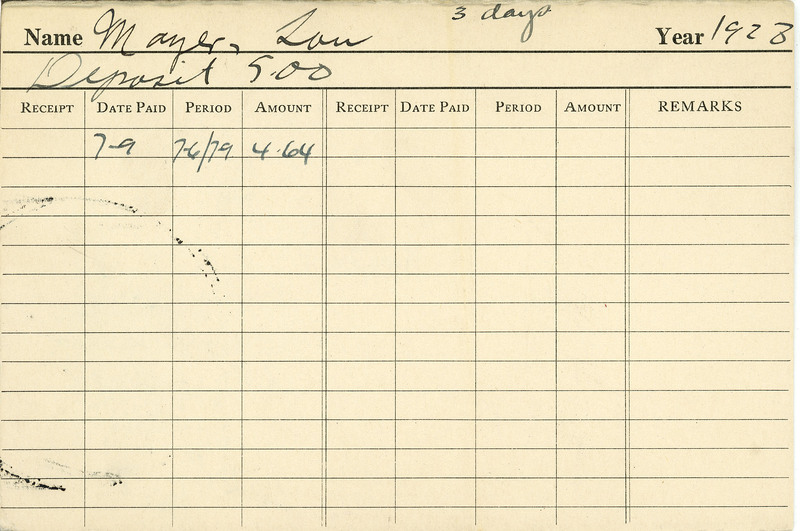 Name Mayer, Lou 3 days Year 1923
Deposit 5.00
RECEIPT DATE PAID PERIOD AMOUNT RECEIPT DATE PAID PERIOD AMOUNT REMARKS
7-9 7-6/7-9 4.64